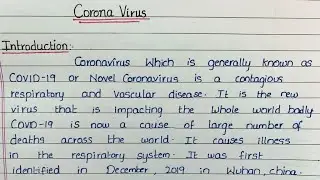 Corona Virus
Introduction:-
Coronavirus Which is generally known as
COVID-19 or Novel Coronavirus is a contagious
respiratory and vascular disease. It is the new
virus that is impacting the whole world badly
COVID-19 is now a cause of large number of
deaths across the world. It causes illness
in the respiratory system. It was first
identified in December, 2019 in Wuhan, china.